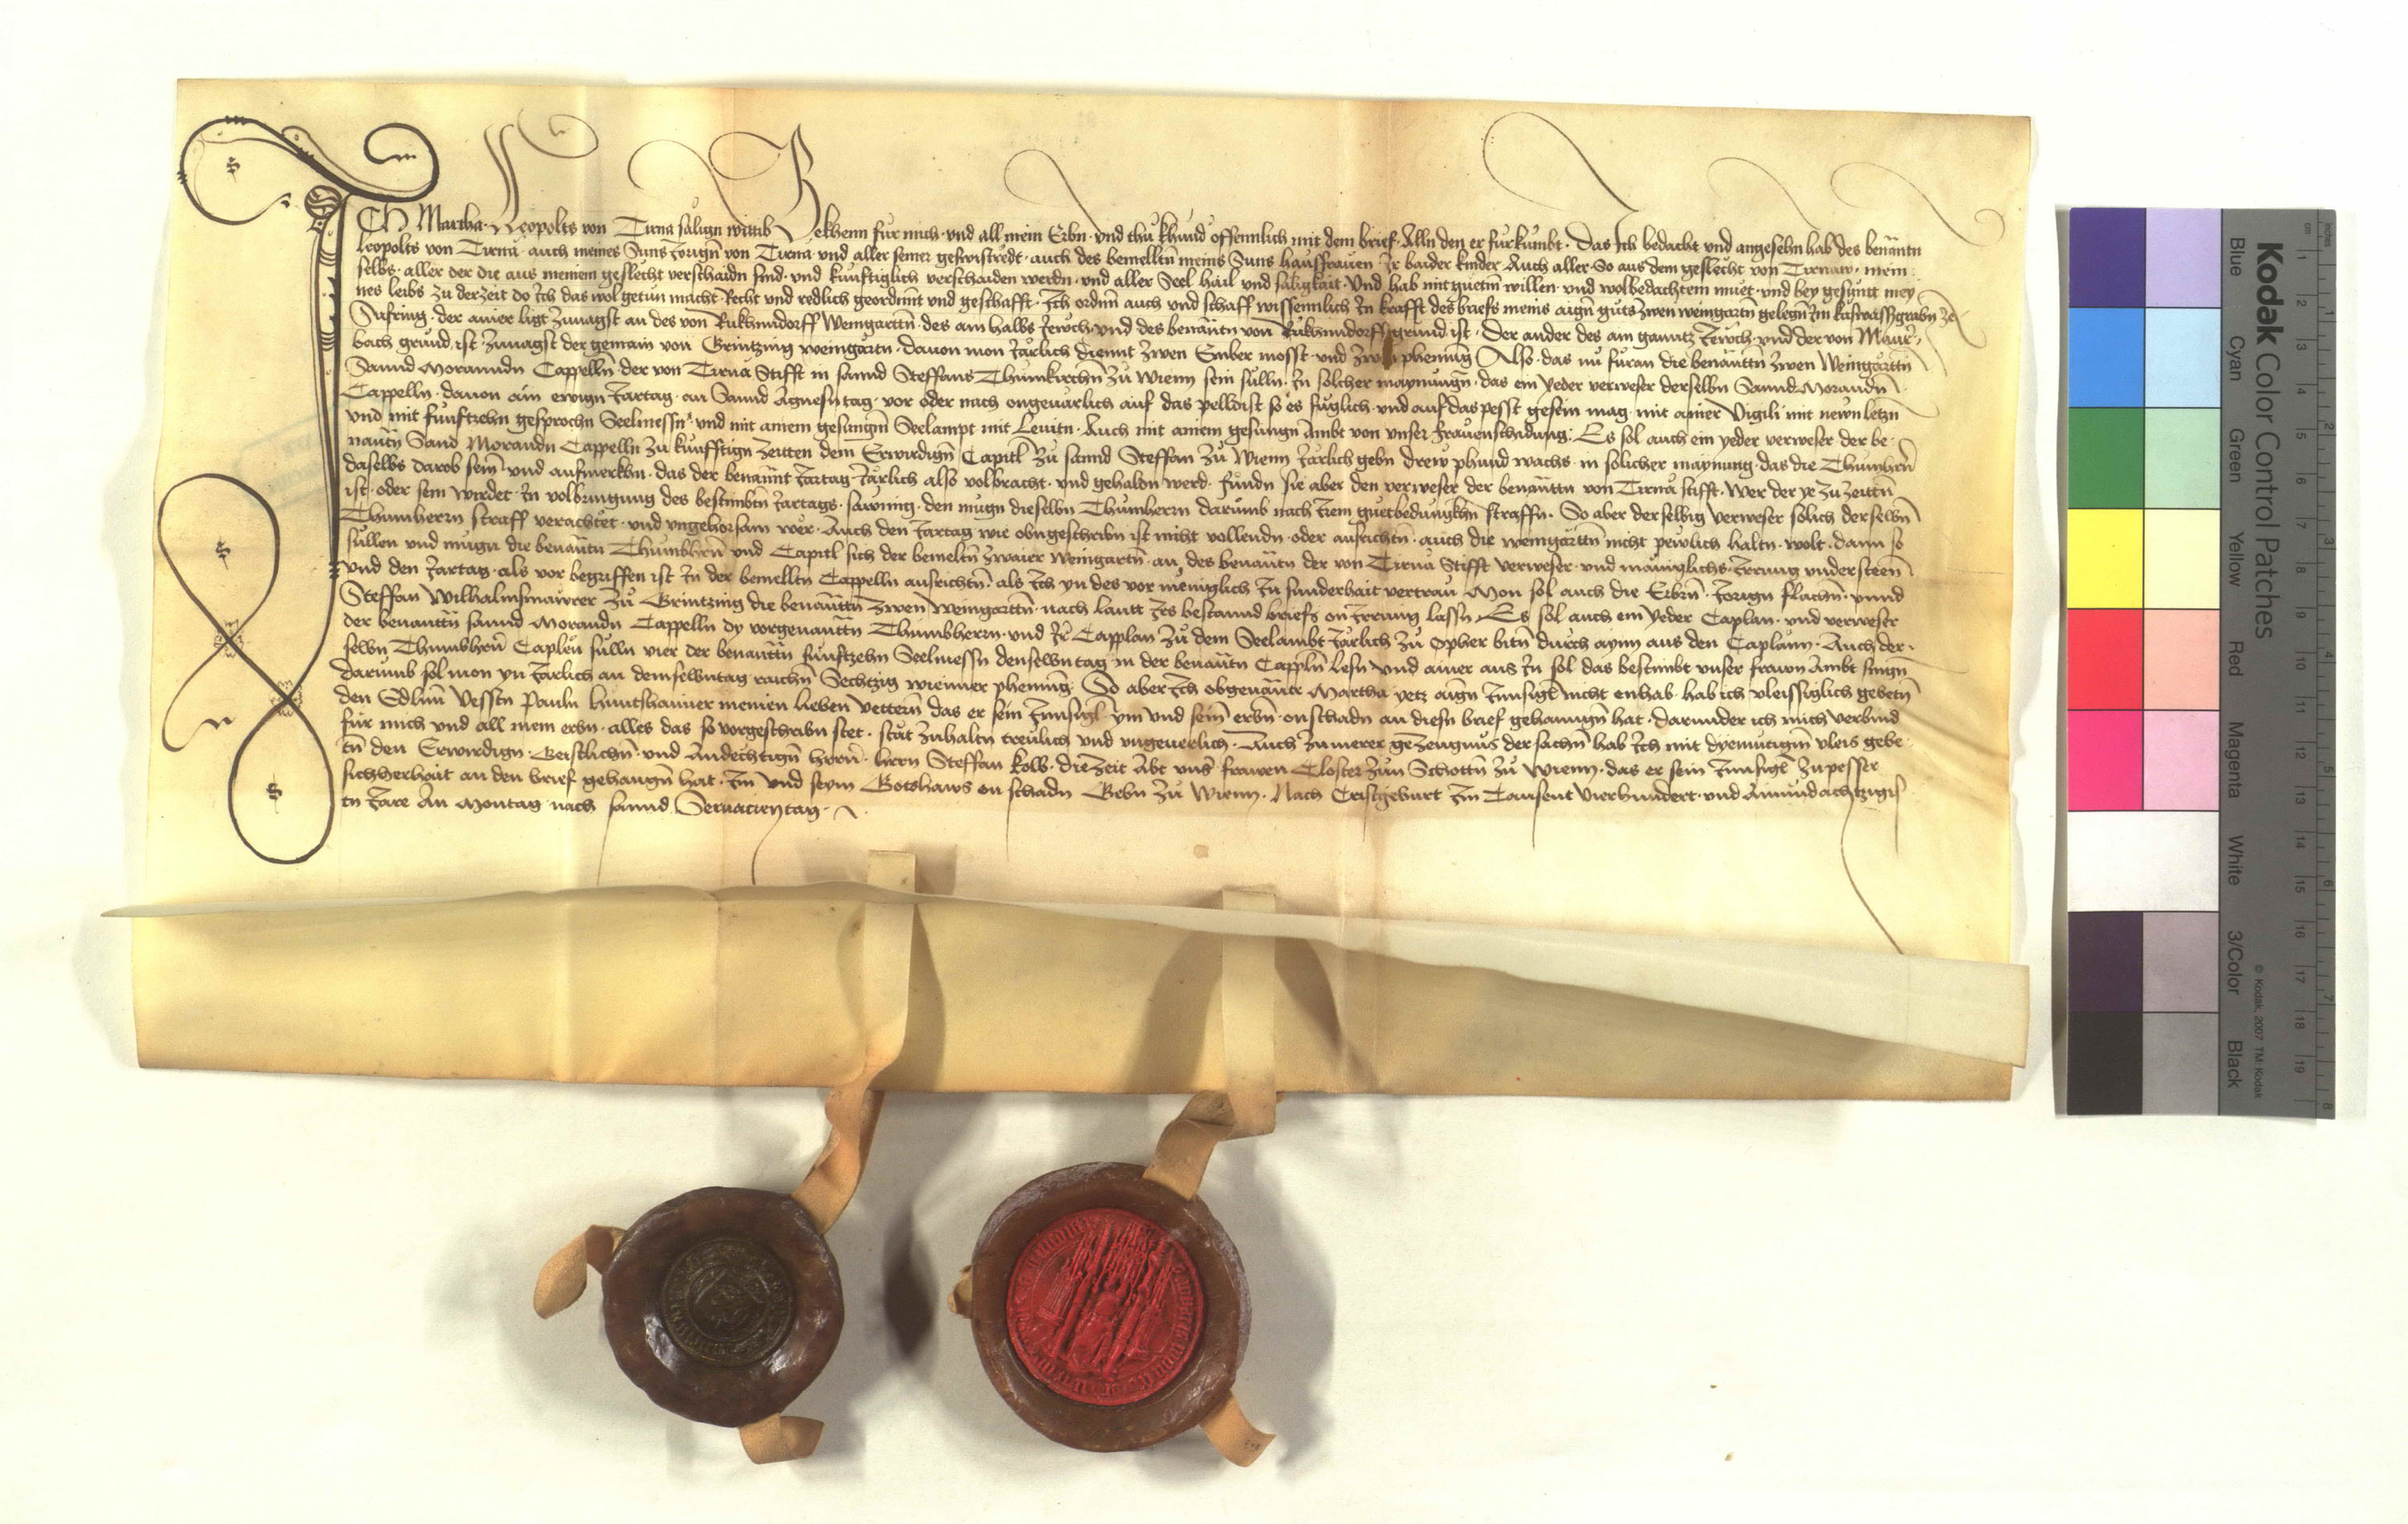 Ich Martha Leopolts von Tirna sálign witib Bekhenn fur mich und all mein Erbn und thu khund offennlich mit dem brief Alln den er furkumbt Das Ich bedacht und angesehn hab des benantn
leopolts von Tirna auch meines Suns Jorign von Tirna und aller seiner geswistredt auch des bemelltn meins Suns hausfrauen Ir baider kinder Auch aller So aus dem geslecht von Tirnaw mein
selbs aller der die aus meinem geslecht verschaidn sind und kunftiglich verschaiden werdn und aller Seel hail und saligkait Und hab mit guetm willen und wolbedachtem muet und bey gesunt mey
nes leibs zu derzeit do Ich das wol getun macht Recht und redlich geordnnt und geschafft Ich ordnn auch und schaff wissennlich In krafft des briefs meins aign guts zwen weingartn gelegn Im kaswassgrabn ze
Sufring der ainer ligt zunagst an des von Rukhndorff Weingarttn des ain halbs Jewch und des benantn von Rukhndorff grund ist Der ander des ain gantz Jewch und der von Maur
bach grund ist zunagst der gemain von Grintzing weingartn dauon mon Jarlich diennt zwen Ember mosst und zwen phenning Also das nu furan die benanttn zwen Weingarttn
Sannd Moranndn Cappelln der von Tirna Stifft in sannd Steffans Thumkirchn zu Wienn sein sulln In solcher maynungn das ein yeder verweser derselbn Sannd Morandn
Cappelln dauon ain ewign Jartag an Sannd Agnesn tag vor oder nach ongeuarlich auf das pelldist so es fuglich und auf das pesst gesein mag mit ainer Vigili mit newn letzn
und mit funftzehn gesprochn Seelmessn und mit ainem gesungnn Seelampt mit Leuitn Auch mit ainem gesungn Ambt von unser frauenschidung Es sol auch ein yeder verweser der be
nantn Sand Morandn Cappelln zu kunfftign Zeitten dem Erwirdign Capitl zu sannd Steffan zu Wienn Jarlich gebn drew phund wachs in solicher maynung das die Thumhern
daselbs darob sein und aufmerkhn das der benannt Jartag Jarlich also volbracht und gehaldn werd fundn sie aber den verweser der benanttn von Tirna stifft Wer der ye zu zeittn
ist oder sein wirdet In volbringung des bestimbtn Jartags sawmig den mugn dieselbn Thumherrn darumb nach Irem guetbedunkhn straffn So aber derselbig verweser solich derselbn
Thumherrn straff verachtet und ungehorsam wer Auch den Jartag wie obngeschribn ist nicht vollendn oder ausrichtn auch die weingarttn nicht pewlich haltn wolt dann so
sullen und mugn die benantn Thumbhern und Capitl sich der bemeltn zwaier Weingartn an des benantn der von Tirna Stifft verweser und maniglichs Irrung understeen
und den Jartag als vor begriffen ist In der bemelltn Cappelln ausrichtn als Ich yn des vor meniglich In sunderhait vertrau Mon sol auch die Erbrn Jorign flachn unnd
Steffan Wilhalmsmawrer zu Grintzing die benanttn zwen Weingarttn nach lautt Irs bestannd briefs on Irrung lassn Es sol auch ein yeder Caplan und verweser
der benanttn sannd Morandn Cappelln dy vorgenanttn Thumbherrn und Ir Capplan zu dem Seelambt Jarlich zu Opher bitn durch aynn aus den Caplann Auch der
selbn Thumbhern Caplen sulln vier der benanttn funftzehn Seelmessn denselbn tag in der benantn Cappln lesn und ainer aus In sol das bestimbt unser frawn Ambt singn
darumb sol mon yn Jarlich an demselbntag raichn Sechtzig wienner phening So aber Ich obgenante Martha yetz aign Innsigl nicht enhab hab ich vleissiglich gebetn
den Edlnn Vesstn Pauln Huntshaimer meinen lieben vettern das er sein Innsigl ym und sein erbn on schadn an diesn brief gehanngn hat darunder ich mich verbind
fur mich und all mein erbn alles das so vorgeschribn stet stat zuhaltn treulich und ungeuerlich Auch zu merer geZeugnus der sachn hab Ich mit dyemutigm vleis gebe
tn den Erwirdign Geistlichn und Andechtign herrn hern Steffan kolb dieZeit Abt uns frawen Closter zun Schottn zu Wienn das er sein Innsigl zu pesser
sichherhait an den brief gehangn hat Im und seym Gotshaws on schadn Gebn zu Wienn Nach Cristgeburt Im Tausent Vierhundert und Ainundachtzigis
tn Jare An Montag nach sannd Seruacientag
Kodak Color Control Patches
Blue Cyan Green Yellow Red Magenta White 3/Color Black
© Kodak, 2007 TM: Kodak
cm 1 2 3 4 5 6 7 8 9 10 11 12 13 14 15 16 17 18 19
inches 1 2 3 4 5 6 7 8